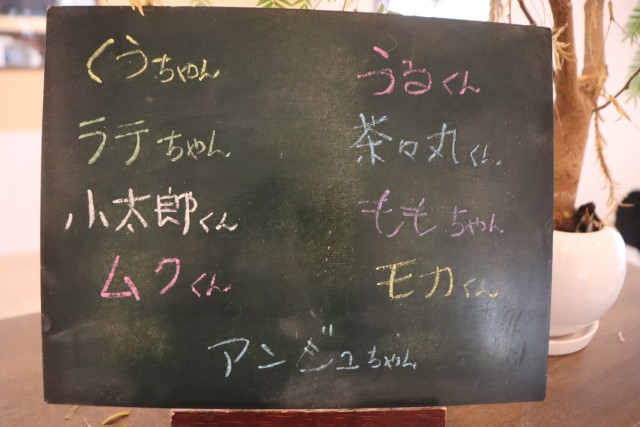 くうちゃん
うるくん
ラテちゃん
茶々丸くん
小太郎くん
ももちゃん
ムクくん
モカくん
アンジュちゃん